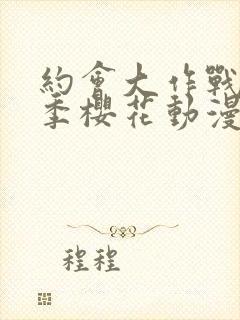 約會大作戰
季櫻花動漫
程程